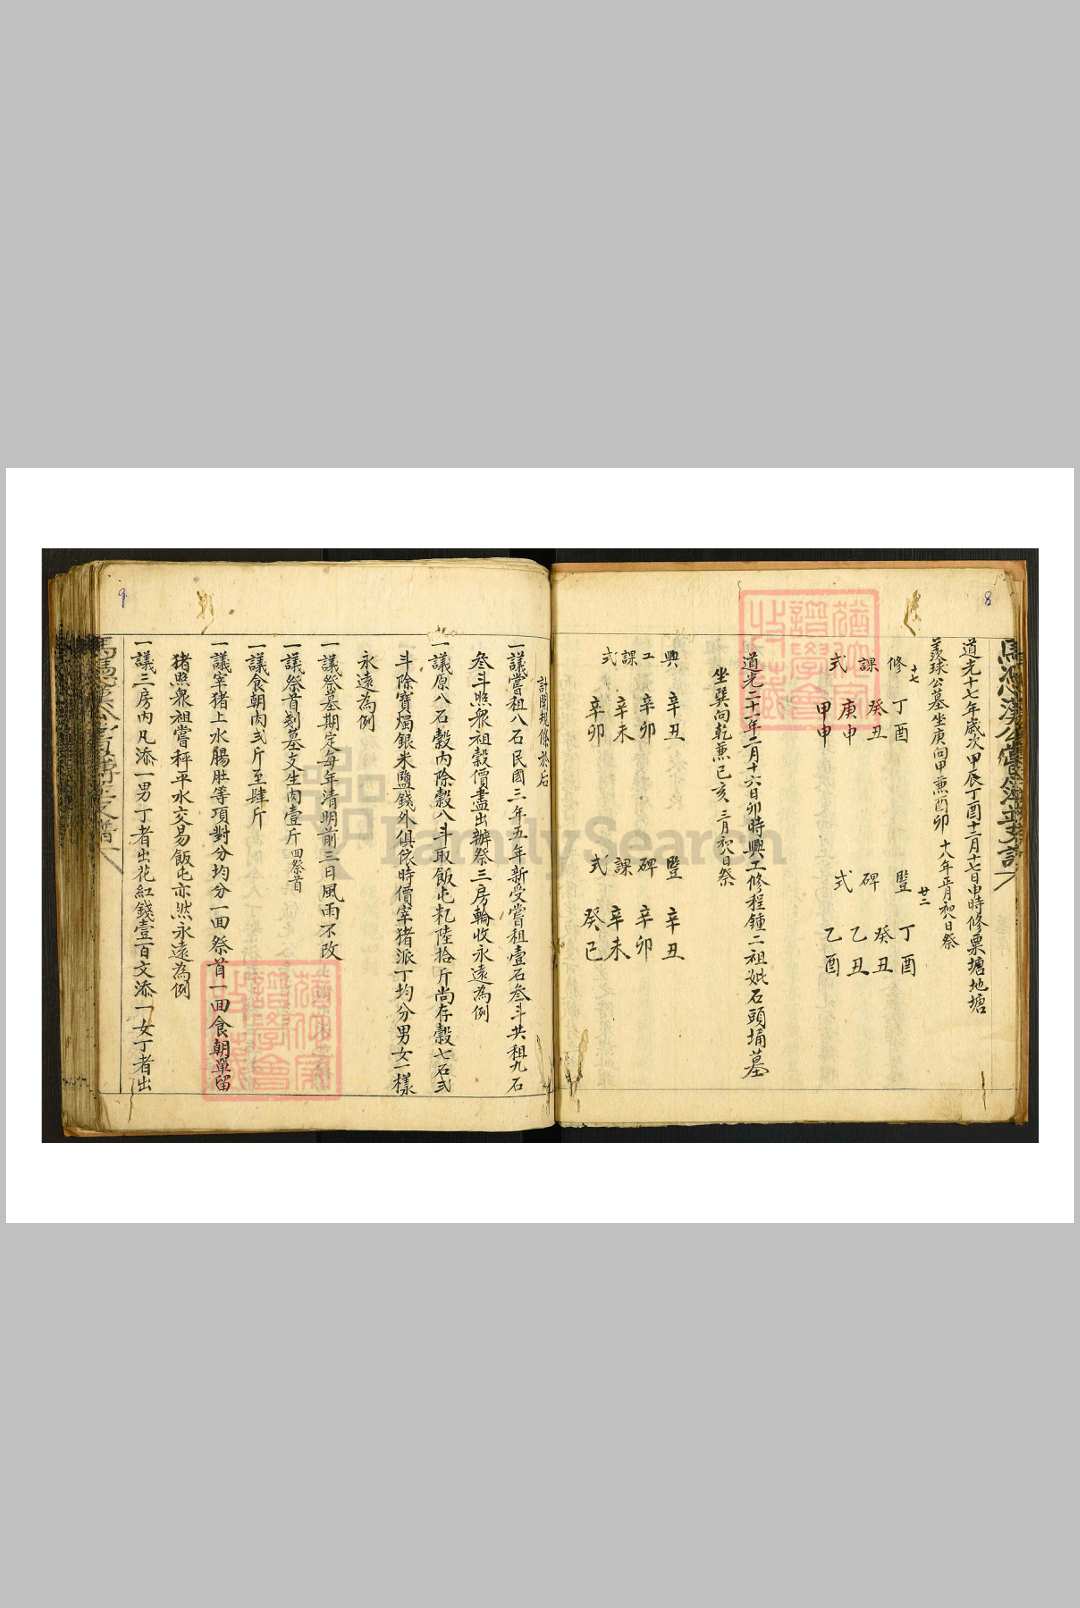 8
道光十七年歲次甲辰丁酉十二月十七日申時修粟塘地塘
義球公墓坐庚向甲兼酉卯 十八年正月初日祭
十七 廿二
修 丁酉 豎 丁酉
課 癸丑 碑 癸丑
式 庚申 式 乙丑
甲申 乙酉
道光二十一年二月十六日卯時興工修程鍾二祖妣石頭埇墓
坐巽向乾兼巳亥 三月初日祭
興 辛丑 豎 辛丑
工 辛卯 碑 辛卯
課 辛未 課 辛未
式 辛卯 式 癸巳
9
計開規條於后
一議嘗租八石民國三年五年新受嘗租壹石叁斗共租九石
叁斗照衆祖穀價盡出辦祭三房輪收永遠為例
一議原八石穀內除穀八斗取飯屯籶陸拾斤尚存穀七石弍
斗除寶燭銀米鹽錢外俱依時價宰猪派丁均分男女一樣
永遠為例
一議祭墓期定每年清明前三日風雨不改
一議祭首剗墓支生肉壹斤 四祭首
一議食朝肉弍斤至肆斤
一議宰猪上水腸肚等項對分均分一面祭首一面食朝單留
猪照衆祖嘗秤平水交易飯屯亦然永遠為例
一議三房內凡添一男丁者出花紅錢壹百文添一女丁者出
FamilySearch